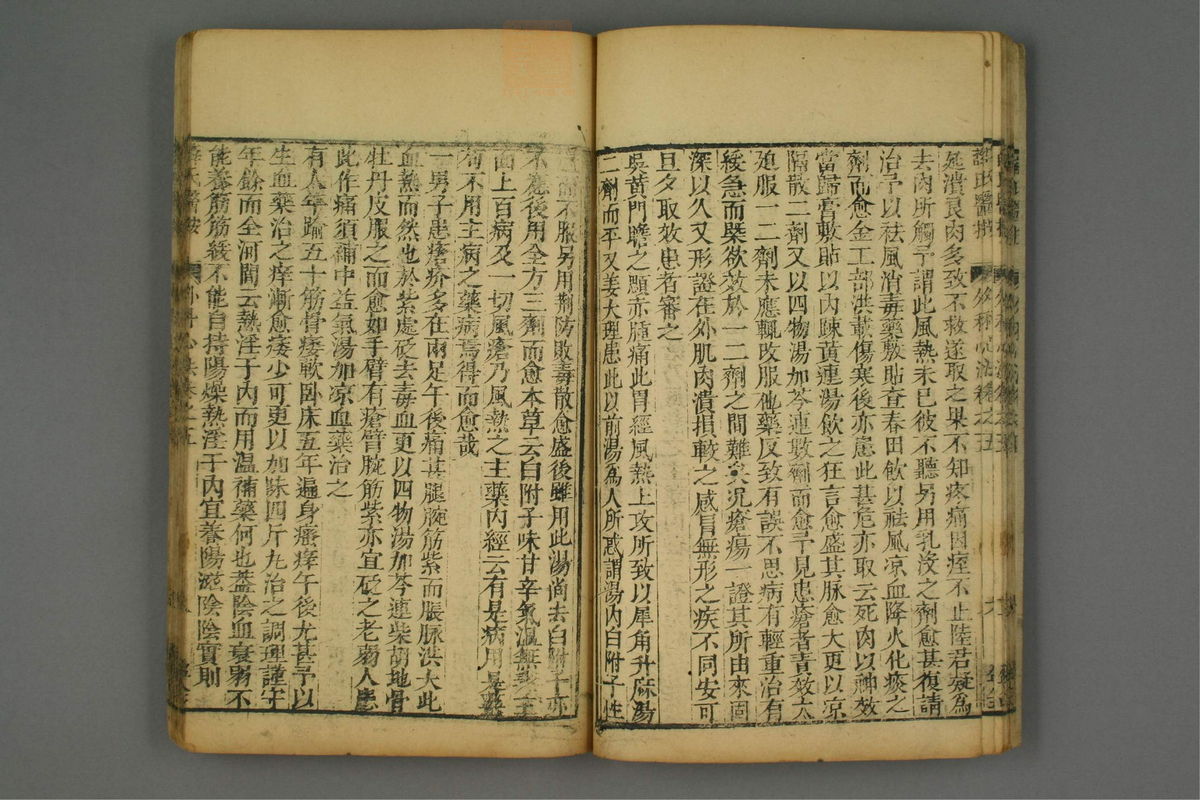 延潰良肉多致不救遂取之果不知疼痛因痓不止陸君疑為
去肉所觸予謂此風熱未已彼不聽另用乳沒之劑愈甚復請
治予以祛風消毒藥敷貼查春田飲以祛風凉血降火化痰之
劑而愈金工部洪載傷寒後亦患此甚危亦取云死肉以神效
當歸膏敷貼以內踈黃連湯飲之狂言愈盛其脉愈大更以凉
隔散二劑又以四物湯加芩連數劑而愈予見患瘡者責效太
廹服一二劑未應輒改服他藥反致有誤不思病有輕重治有
緩急而槩欲效於一二劑之間難矣况瘡瘍一證其所由來固
深以久又形證在外肌肉潰損較之感冒無形之疾不同安可
旦夕取效患者審之
吳黃門瞻之顋亦腫痛此胃經風熱上攻所致以犀角升麻湯
二劑而平又姜大理患此以前湯為人所惑謂湯內白附子性
不服另用荆防敗毒散愈盛後雖用此湯尚去白附子亦
不應後用全方三劑而愈本草云白附子味甘辛氣溫無毒主
面上百病及一切風瘡乃風熱之主藥內經云有是病用是藥
苟不用主病之藥病焉得而愈哉
一男子患瘡疥多在兩足午後痛甚腿腕筋紫而脹脉洪大此
血熱而然也於紫處砭去毒血更以四物湯加芩連柴胡地骨
牡丹皮服之而愈如手臂有瘡臂腕筋紫亦宜砭之老弱人患
此作痛須補中益氣湯加凉血藥治之
有人年踰五十筋骨痿軟卧床五年遍身瘙痒午後尤甚予以
生血藥治之痒漸愈痿少可更以加味四斤丸治之調理謹守
年餘而全河間云熱淫于內而用溫補藥何也葢陰血衰弱不
能養筋筋緩不能自持陽燥熱淫于內宜養陽滋陰陰實則